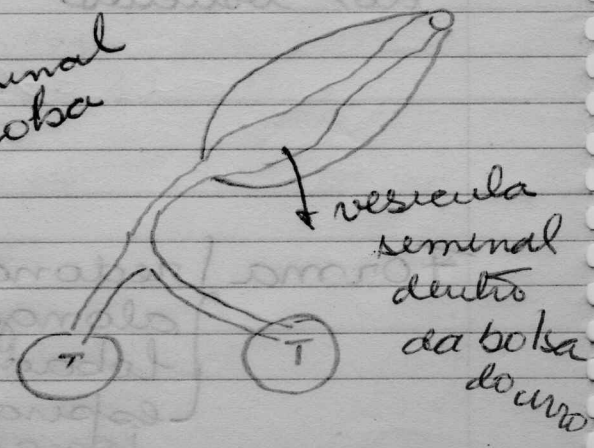 bolsa
T
T
vesicula
seminal
dentro
da bolsa
do cirro